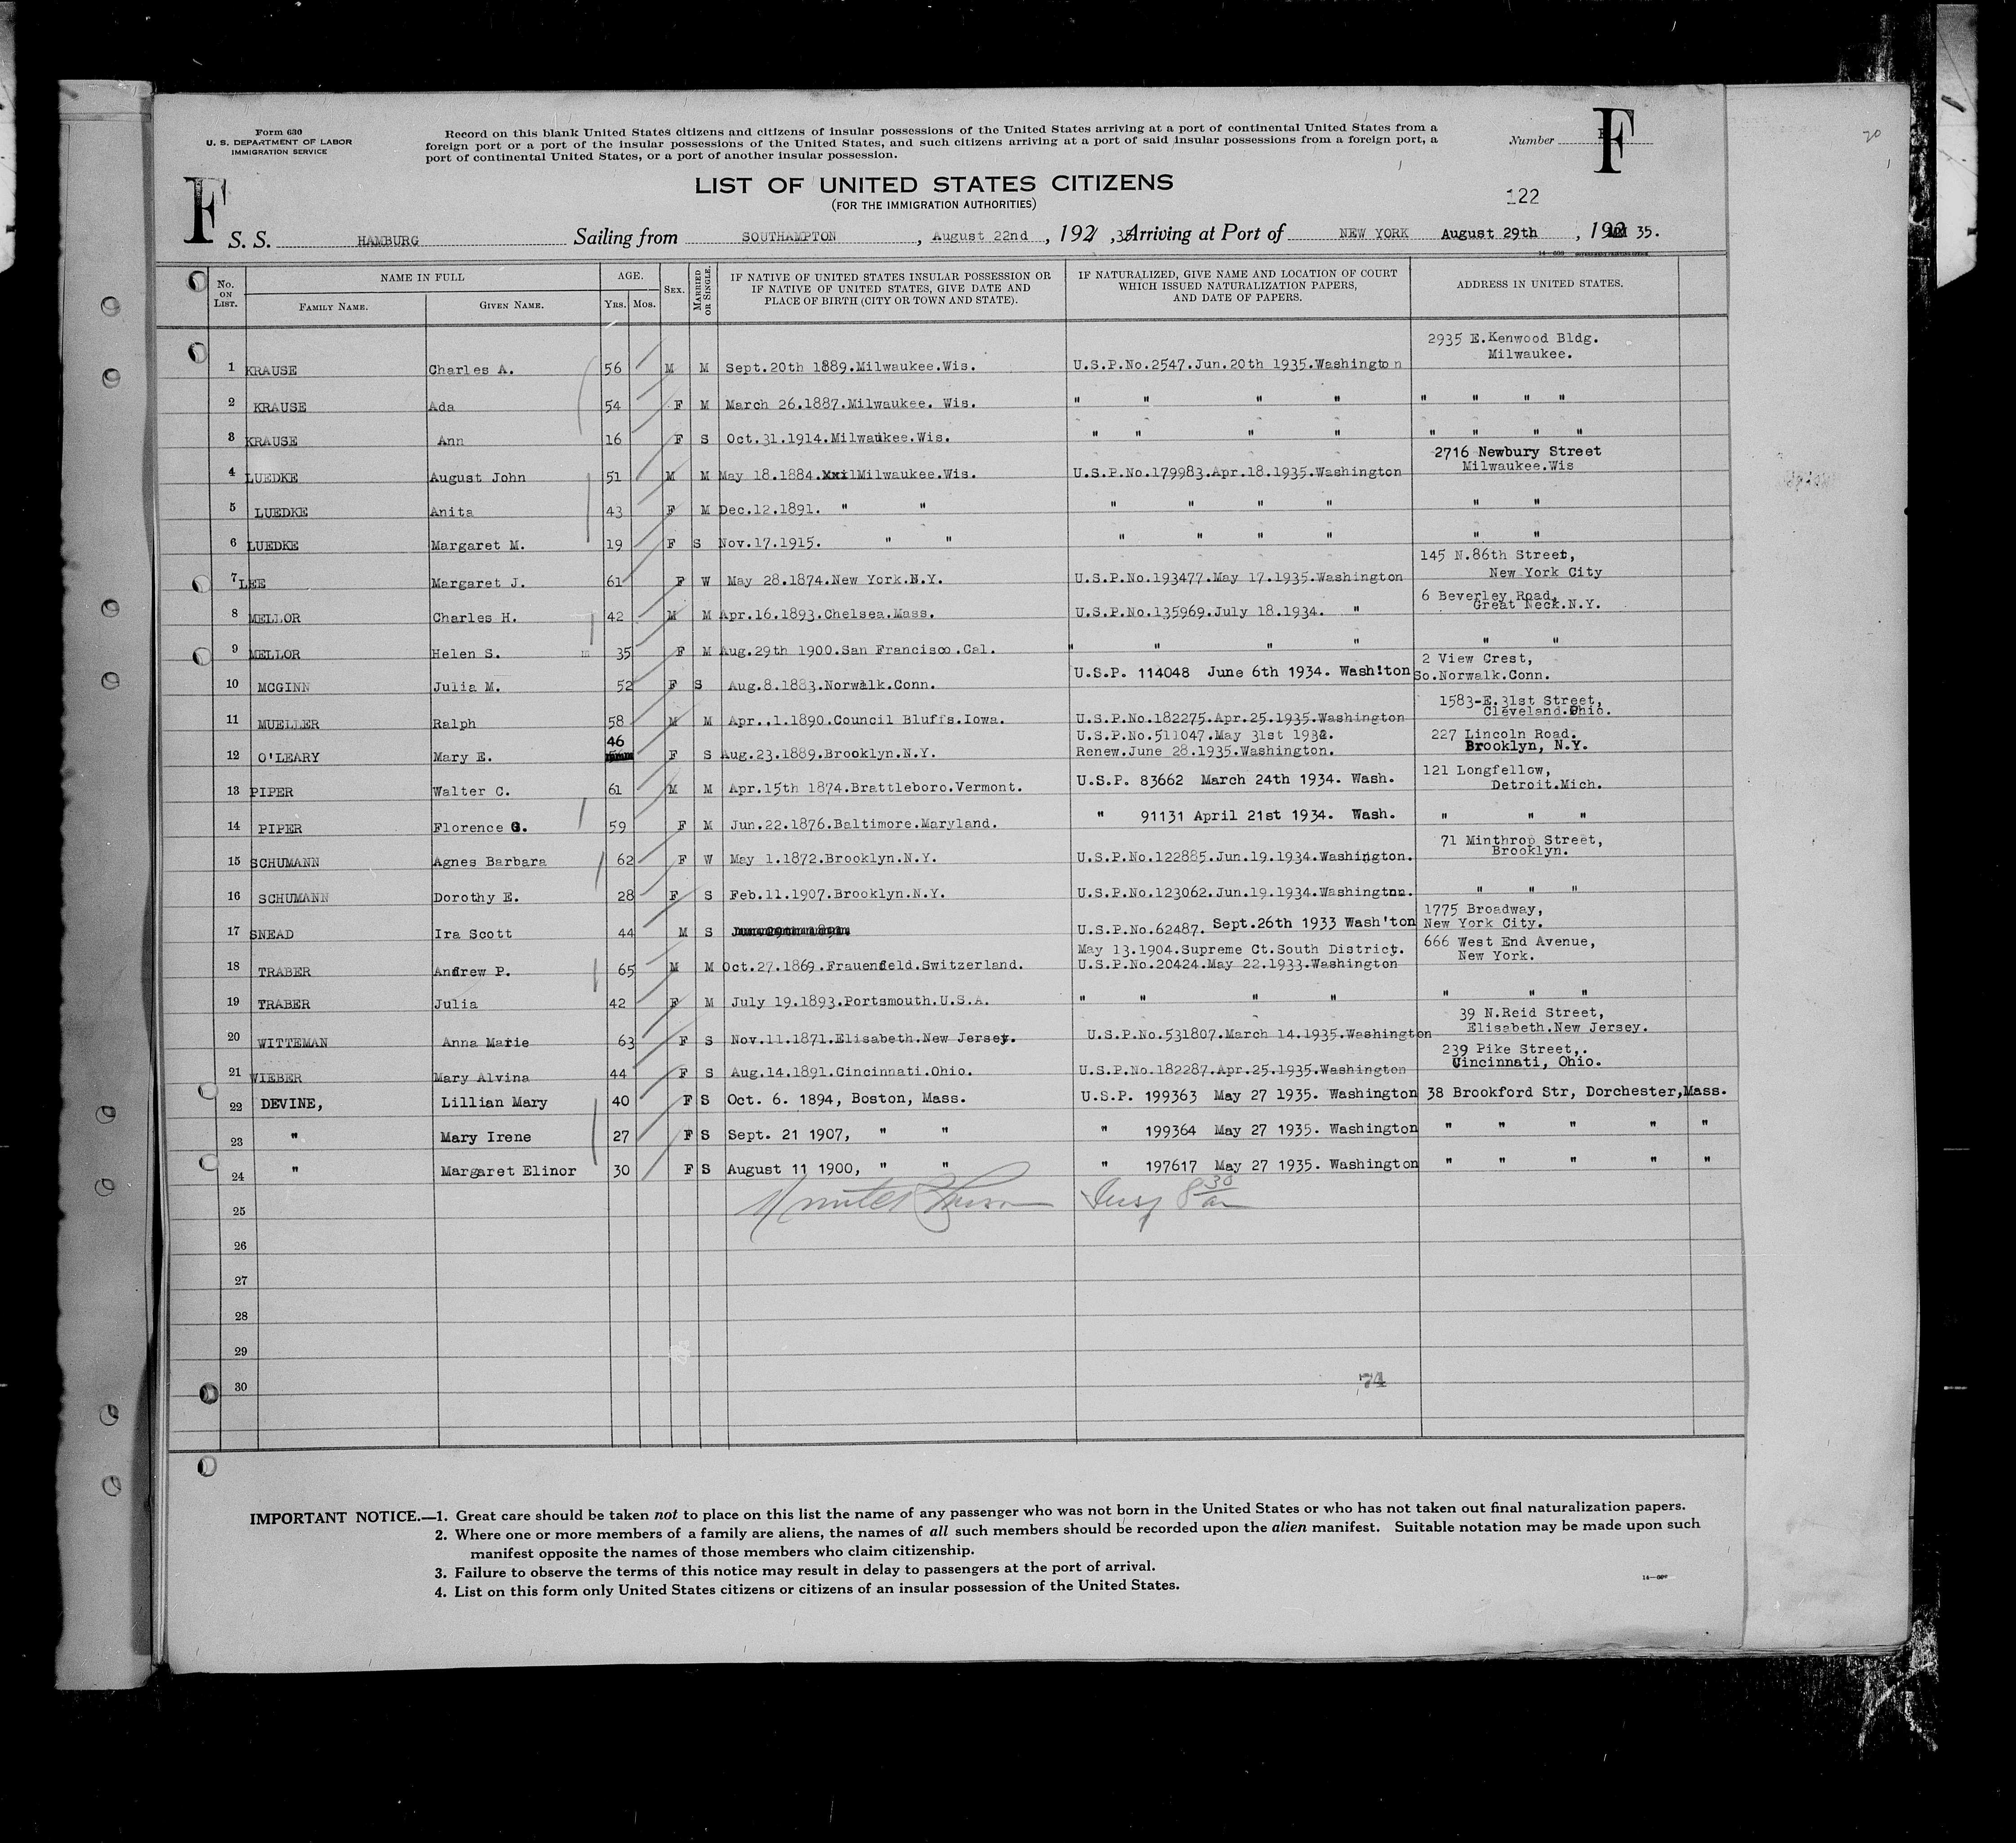 20
Form 630
U. S. DEPARTMENT OF LABOR
IMMIGRATION SERVICE
Record on this blank United States citizens and citizens of insular possessions of the United States arriving at a port of continental United States from a
foreign port or a port of the insular possessions of the United States, and such citizens arriving at a port of said insular possessions from a foreign port, a
port of continental United States, or a port of another insular possession.
Number F
F
LIST OF UNITED STATES CITIZENS
(FOR THE IMMIGRATION AUTHORITIES)
122
S. S. HAMBURG Sailing from SOUTHAMPTON, August 22nd, 192 , 35 Arriving at Port of NEW YORK August 29th, 192 35.
No. ON LIST. NAME IN FULL AGE. SEX. MARRIED OR SINGLE. IF NATIVE OF UNITED STATES INSULAR POSSESSION OR IF NATIVE OF UNITED STATES, GIVE DATE AND PLACE OF BIRTH (CITY OR TOWN AND STATE). IF NATURALIZED, GIVE NAME AND LOCATION OF COURT WHICH ISSUED NATURALIZATION PAPERS, AND DATE OF PAPERS. ADDRESS IN UNITED STATES.
FAMILY NAME. GIVEN NAME. YRS. MOS.
2935 E.Kenwood Bldg.
1 KRAUSE Charles A. 56 M M Sept.20th 1889.Milwaukee.Wis. U.S.P.No.2547.Jun.20th 1935.Washington Milwaukee.
2 KRAUSE Ada 54 F M March 26.1887.Milwaukee. Wis. " " " " " " " "
3 KRAUSE Ann 16 F S Oct.31.1914.Milwaukee.Wis. " " " " " " " "
2716 Newbury Street
4 LUEDKE August John 51 M M May 18.1884.Milwaukee.Wis. U.S.P.No.179983.Apr.18.1935.Washington Milwaukee.Wis
5 LUEDKE Anita 43 F M Dec.12.1891. " " " " " " " "
6 LUEDKE Margaret M. 19 F S Nov.17.1915. " " " " " " " "
145 N.86th Street,
7 LEE Margaret J. 61 F W May 28.1874.New York.N.Y. U.S.P.No.193477.May 17.1935.Washington New York City
6 Beverley Road,
8 MELLOR Charles H. 42 M M Apr.16.1893.Chelsea.Mass. U.S.P.No.135969.July 18.1934. " Great Neck.N.Y.
9 MELLOR Helen S. m 35 F M Aug.29th 1900.San Francisco.Cal. " " " " " "
2 View Crest,
10 MCGINN Julia M. 52 F S Aug.8.1883.Norwalk.Conn. U.S.P. 114048 June 6th 1934. Wash!ton So.Norwalk.Conn.
1583-E.31st Street,
11 MUELLER Ralph 58 M M Apr..1.1890.Council Bluffs.Iowa. U.S.P.No.182275.Apr.25.1935.Washington Cleveland.Ohio.
46 U.S.P.No.511047.May 31st 1932. 227 Lincoln Road.
12 O'LEARY Mary E. F S Aug.23.1889.Brooklyn.N.Y. Renew.June 28.1935.Washington. Brooklyn, N.Y.
121 Longfellow,
13 PIPER Walter C. 61 M M Apr.15th 1874.Brattleboro.Vermont. U.S.P. 83662 March 24th 1934. Wash. Detroit.Mich.
14 PIPER Florence G. 59 F M Jun.22.1876.Baltimore.Maryland. " 91131 April 21st 1934. Wash. " " "
71 Minthrop Street,
15 SCHUMANN Agnes Barbara 62 F W May 1.1872.Brooklyn.N.Y. U.S.P.No.122885.Jun.19.1934.Washington. Brooklyn.
16 SCHUMANN Dorothy E. 28 F S Feb.11.1907.Brooklyn.N.Y. U.S.P.No.123062.Jun.19.1934.Washingtnn. " " "
1775 Broadway,
17 SNEAD Ira Scott 44 M S U.S.P.No.62487. Sept.26th 1933 Wash'ton New York City.
May 13.1904.Supreme Ct.South District. 666 West End Avenue,
18 TRABER Andrew P. 65 M M Oct.27.1869.Frauenfield.Switzerland. U.S.P.No.20424.May 22.1933.Washington New York.
19 TRABER Julia 42 F M July 19.1893.Portsmouth.U.S.A. " " " " " " "
39 N.Reid Street,
20 WITTEMAN Anna Marie 63 F S Nov.11.1871.Elisabeth.New Jersey. U.S.P.No.531807.March 14.1935.Washington Elisabeth.New Jersey.
239 Pike Street,.
21 WIEBER Mary Alvina 44 F S Aug.14.1891.Cincinnati.Ohio. U.S.P.No.182287.Apr.25.1935.Washington Cincinnati, Ohio.
22 DEVINE, Lillian Mary 40 F S Oct. 6. 1894, Boston, Mass. U.S.P. 199363 May 27 1935. Washington 38 Brookford Str, Dorchester,Mass.
23 " Mary Irene 27 F S Sept. 21 1907, " " " 199364 May 27 1935. Washington " " " " "
24 " Margaret Elinor 30 F S August 11 1900, " " " 197617 May 27 1935. Washington " " " " "
25
26
27
28
29
30
74
IMPORTANT NOTICE.—1. Great care should be taken not to place on this list the name of any passenger who was not born in the United States or who has not taken out final naturalization papers.
2. Where one or more members of a family are aliens, the names of all such members should be recorded upon the alien manifest. Suitable notation may be made upon such
manifest opposite the names of those members who claim citizenship.
3. Failure to observe the terms of this notice may result in delay to passengers at the port of arrival.
4. List on this form only United States citizens or citizens of an insular possession of the United States.